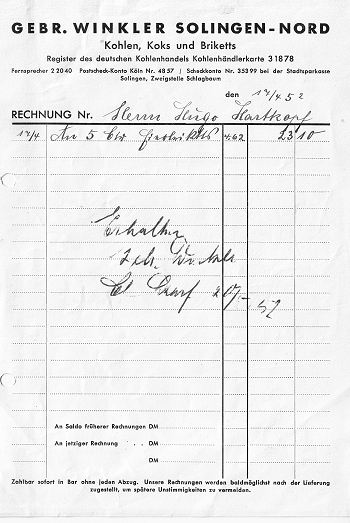 GEBR. WINKLER SOLINGEN-NORD
Kohlen, Koks und Briketts
Register des deutschen Kohlenhandels Kohlenhändlerkarte 31878
Fernsprecher 22040 Postscheck-Konto Köln Nr. 4857 | Scheckkonto Nr. 35399 bei der Stadtsparkasse
Solingen, Zweigstelle Schlagbaum
den 17/4 52
RECHNUNG Nr. Herrn Hugo Hartkopf
17/4 An 5 Ctr. 4.62 23 10
Erhalten
Gebr. Winkler
An Saldo früherer Rechnungen DM
An jetziger Rechnung . . DM
DM
Zahlbar sofort in Bar ohne jeden Abzug. Unsere Rechnungen werden baldmöglichst nach der Lieferung
zugestellt, um spätere Unstimmigkeiten zu vermeiden.